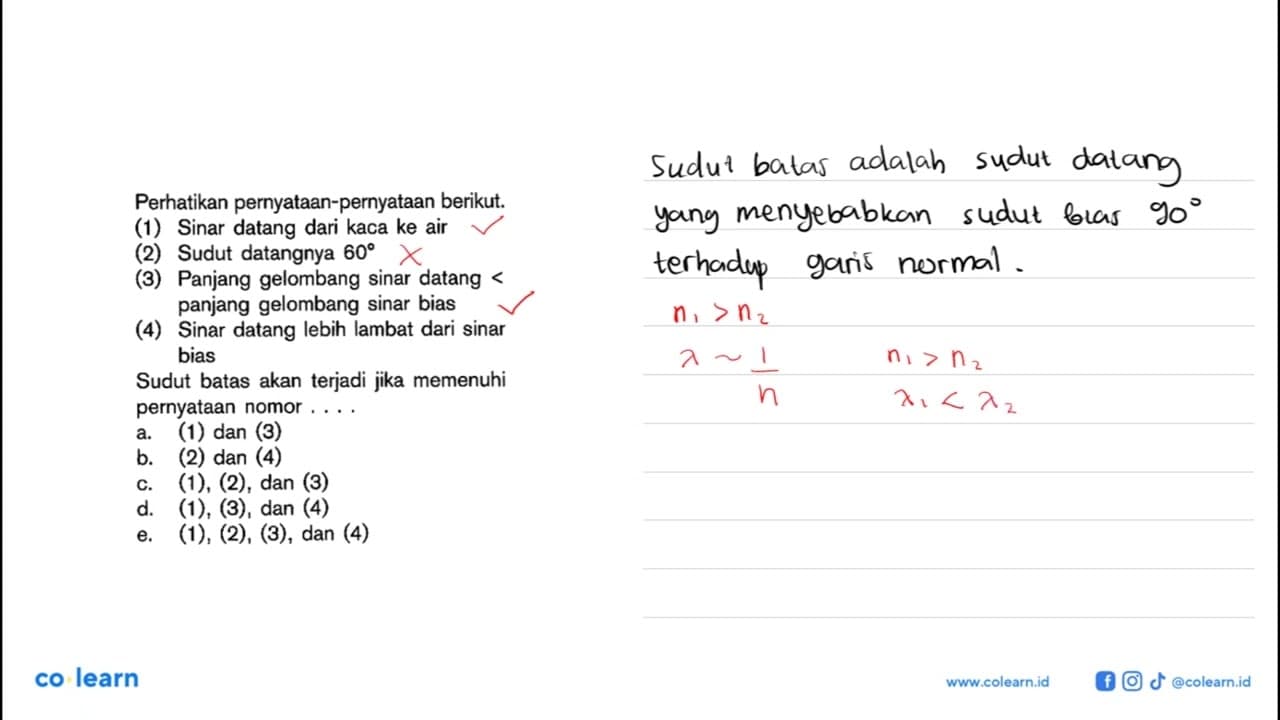 Perhatikan pernyataan-pernyataan berikut.
(1) Sinar datang dari kaca ke air ✓
(2) Sudut datangnya 60° ✗
(3) Panjang gelombang sinar datang <
panjang gelombang sinar bias ✓
(4) Sinar datang lebih lambat dari sinar
bias
Sudut batas akan terjadi jika memenuhi
pernyataan nomor . . . .
a. (1) dan (3)
b. (2) dan (4)
c. (1), (2), dan (3)
d. (1), (3), dan (4)
e. (1), (2), (3), dan (4)
Sudut batas adalah sudut datang
yang menyebabkan sudut bias 90°
terhadap garis normal.
n₁ > n₂
λ ~ 1/n n₁ > n₂
λ₁ < λ₂
co learn
www.colearn.id @colearn.id